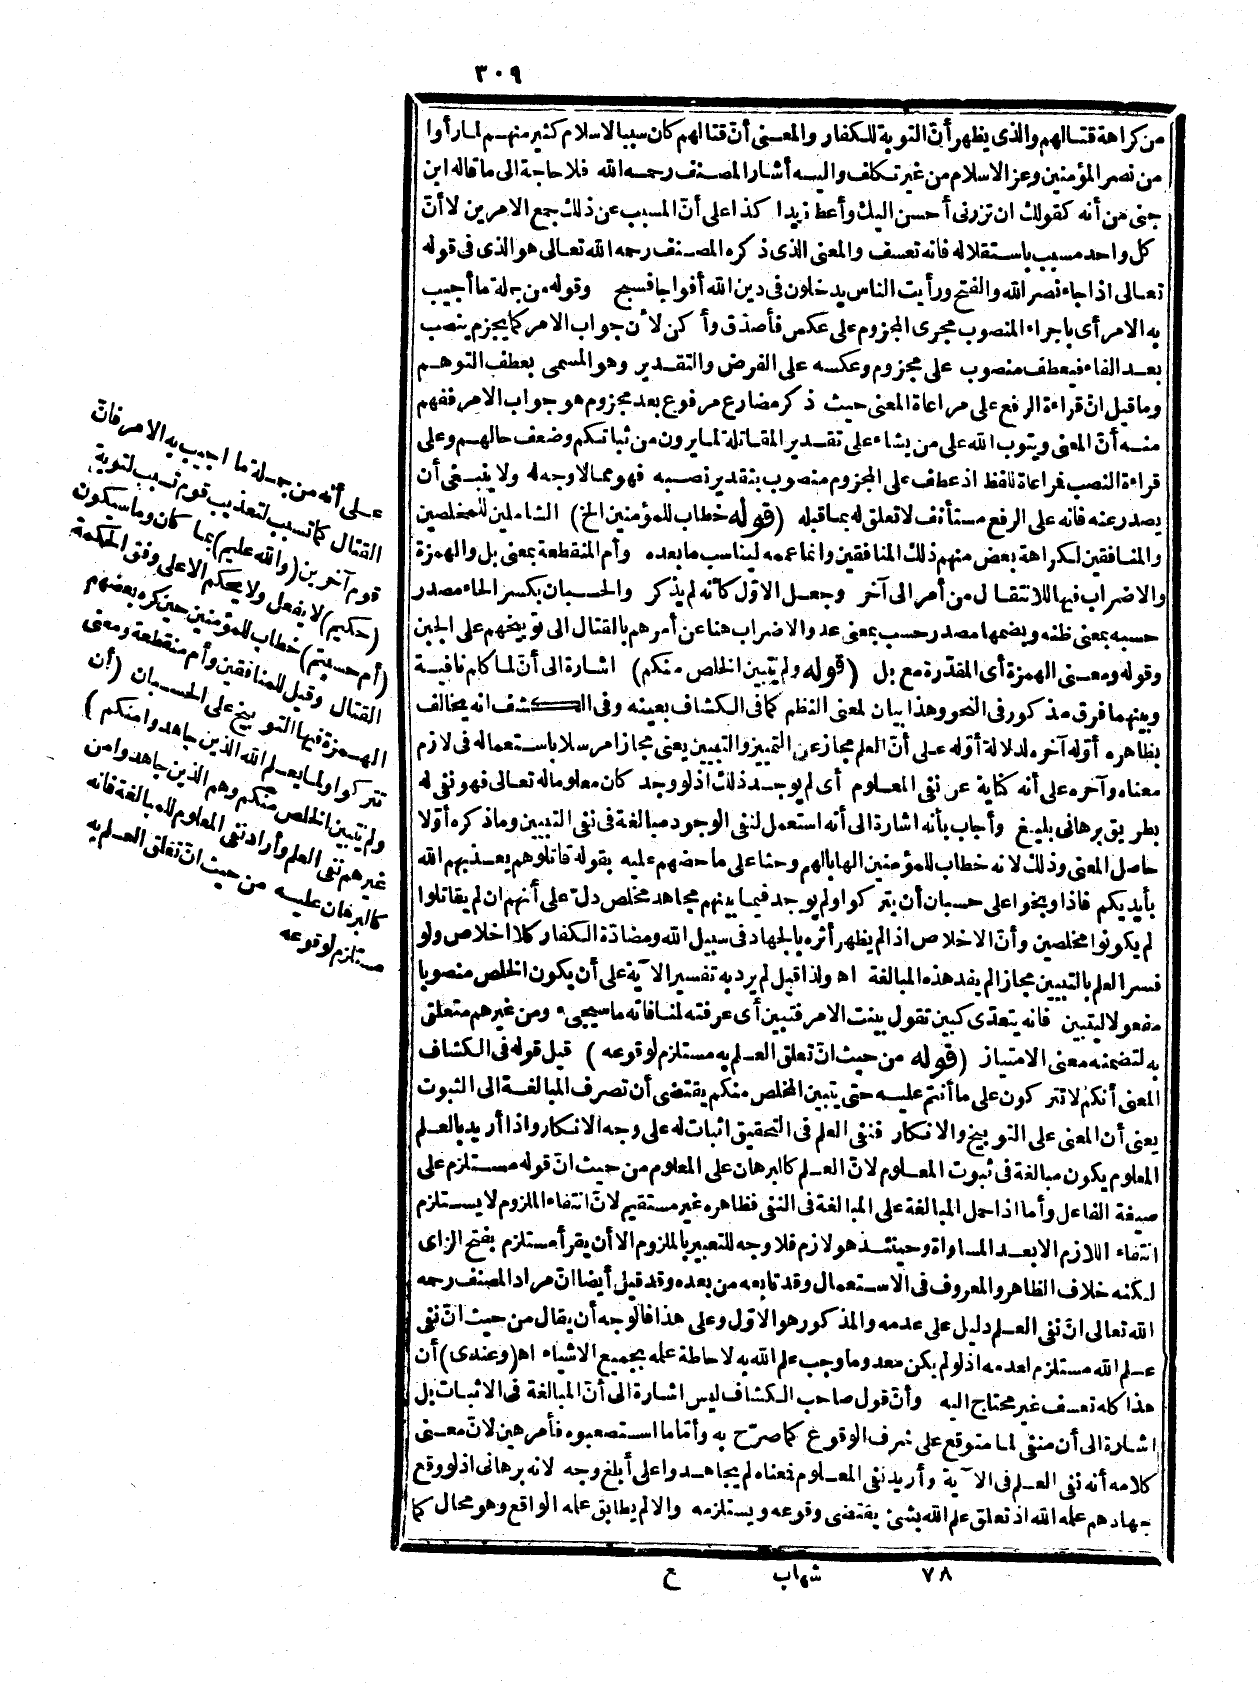 ٣٠٩
من كراهة قتالهم والذى يظهر أنّ التوبة للكفار والمعنى أنّ قتالهم كان سببا لاسلام كثير منهم لما رأوا
من نصر المؤمنين وعز الاسلام من غير تكلف واليه أشار المصنف رحمه الله فلا حاجة الى ما قاله ابن
جنى من أنه كقولك ان تزرنى أحسن اليك وأعط زيدا كذا على أنّ المسبب عن ذلك جمع الامرين لا أنّ
كل واحد مسبب باستقلاله فانه تعسف والمعنى الذى ذكره المصنف رحمه الله تعالى هو الذى فى قوله
تعالى اذا جاء نصر الله والفتح ورأيت الناس يدخلون فى دين الله أفواجا فسبح وقوله من جملة ما أجيب
به الامر أى باجراء المنصوب مجرى المجزوم على عكس فأصدق وأكن لأن جواب الامر كما يجزم ينصب
بعد الفاء فيعطف منصوب على مجزوم وعكسه على الفرض والتقدير وهو المسمى بعطف التوهم
وما قيل انّ قراءة الرفع على مراعاة المعنى حيث ذكر مضارع مرفوع بعد مجزوم هو جواب الامر ففهم
منه أنّ المعنى ويتوب الله على من يشاء على تقدير المقاتلة لما يرون من ثباتكم وضعف حالهم وعلى
قراءة النصب فمراعاة للفظ اذ عطف على المجزوم منصوب بتقدير نصبه فهو مما لا وجه له ولا ينبغى أن
يصدر عنه فانه على الرفع مستأنف لا تعلق له بما قبله (قوله خطاب للمؤمنين الخ) الشاملين للمخلصين
والمنافقين لكراهة بعض منهم ذلك المنافقين وانما عممه ليناسب ما بعده وأم المنقطعة بمعنى بل والهمزة
والاضراب فيها للانتقال من أمر الى آخر وجعل الاوّل كأنه لم يذكر والحسبان بكسر الحاء مصدر
حسبه بمعنى ظنه وبضمها مصدر حسب بمعنى عد والاضراب هنا عن أمرهم بالقتال الى توبيخهم على الجبن
وقوله ومعنى الهمزة أى المقدرة مع بل (قوله ولم يتبين الخلص منكم) اشارة الى أنّ لما كلم نافية
وبينهما فرق مذكور فى النحو وهذا بيان لمعنى النظم كما فى الكشاف بعينه وفى الكشف انه يخالف
بظاهره أوّله آخره لدلالة أوّله على أنّ العلم مجاز عن التمييز والتبيين يعنى مجازا مرسلا باستعماله فى لازم
معناه وآخره على أنه كناية عن نفى المعلوم أى لم يوجد ذلك اذ لو وجد كان معلوما له تعالى فهو نفى له
بطريق برهانى بليغ وأجاب بأنه اشارة الى أنه استعمل لنفى الوجود مبالغة فى نفى التبيين وما ذكره أوّلا
حاصل المعنى وذلك لانه خطاب للمؤمنين الهابالهم وحثا على ما حضهم عليه بقوله قاتلوهم يعذبهم الله
بأيديكم فاذا وبخوا على حسبان أن يتركوا ولم يوجد فيما بينهم مجاهد مخلص دل على أنهم ان لم يقاتلوا
لم يكونوا مخلصين وأنّ الاخلاص اذا لم يظهر أثره بالجهاد فى سبيل الله ومضادّة الكفار كلا اخلاص ولو
فسر العلم بالتبيين مجازا لم يفد هذه المبالغة اه ولذا قيل لم يرد به تفسير الآية على أن يكون الخلص منصوبا
مفعولا ليتبين فانه يتعدّى كبين تقول بينت الامر فتبين أى عرفته لمنافاته ما سيجىء ومن غيرهم متعلق
به لتضمنه معنى الامتياز (قوله من حيث انّ تعلق العلم به مستلزم لوقوعه) قيل قوله فى الكشاف
المعنى أنكم لا تتركون على ما أنتم عليه حتى يتبين المخلص منكم يقتضى أن تصرف المبالغة الى الثبوت
يعنى أن المعنى على التوبيخ والانكار فنفى العلم فى التحقيق اثبات له على وجه الانكار واذا أريد بالعلم
المعلوم يكون مبالغة فى ثبوت المعلوم لانّ العلم كالبرهان على المعلوم من حيث انّ قوله مستلزم على
صيغة الفاعل وأما اذا حمل المبالغة على المبالغة فى النفى فظاهره غير مستقيم لانّ انتفاء الملزوم لا يستلزم
انتفاء اللازم الا بعد المساواة وحينئذ هو لازم فلا وجه للتعبير بالملزوم الا أن يقرأ مستلزم بفتح الزاى
لكنه خلاف الظاهر والمعروف فى الاستعمال وقد تابعه من بعده وقد قيل أيضا انّ مراد المصنف رحمه
الله تعالى انّ نفى العلم دليل على عدمه والمذكور هو الاوّل وعلى هذا فالوجه أن يقال من حيث انّ نفى
علم الله مستلزم لعدمه اذ لو لم يكن معدوما وجب علم الله به لاحاطة علمه بجميع الاشياء اه (وعندى) أن
هذا كله تعسف غير محتاج اليه وأنّ قول صاحب الكشاف ليس اشارة الى أنّ المبالغة فى الاثبات بل
اشارة الى أن منفى لما متوقع على شرف الوقوع كما صرّح به وأمّا ما استصعبوه فأمر هين لانّ معنى
كلامه أنه نفى العلم فى الآية وأريد نفى المعلوم فمعناه لم يجاهدوا على أبلغ وجه لانه برهانى اذ لو وقع
جهادهم علمه الله اذ تعلق علم الله بشئ يقتضى وقوعه ويستلزمه والا لم يطابق علمه الواقع وهو محال كما
على أنه من جملة ما أجيب به الامر فانّ
القتال كما تسبب لتعذيب قوم تسبب لتوبة
قوم آخرين (والله عليم) بما كان وما سيكون
(حكيم) لا يفعل ولا يحكم الا على وفق الحكمة
(أم حسبتم) خطاب للمؤمنين حين كره بعضهم
القتال وقيل للمنافقين وأم منقطعة ومعنى
الهمزة فيها التوبيخ على الحسبان (أن
تتركوا ولما يعلم الله الذين جاهدوا منكم)
ولم يتبين الخلص منكم وهم الذين جاهدوا من
غيرهم نفى العلم وأراد نفى المعلوم للمبالغة فانه
كالبرهان عليه من حيث انّ تعلق العلم به
مستلزم لوقوعه
٧٨ شهاب ع